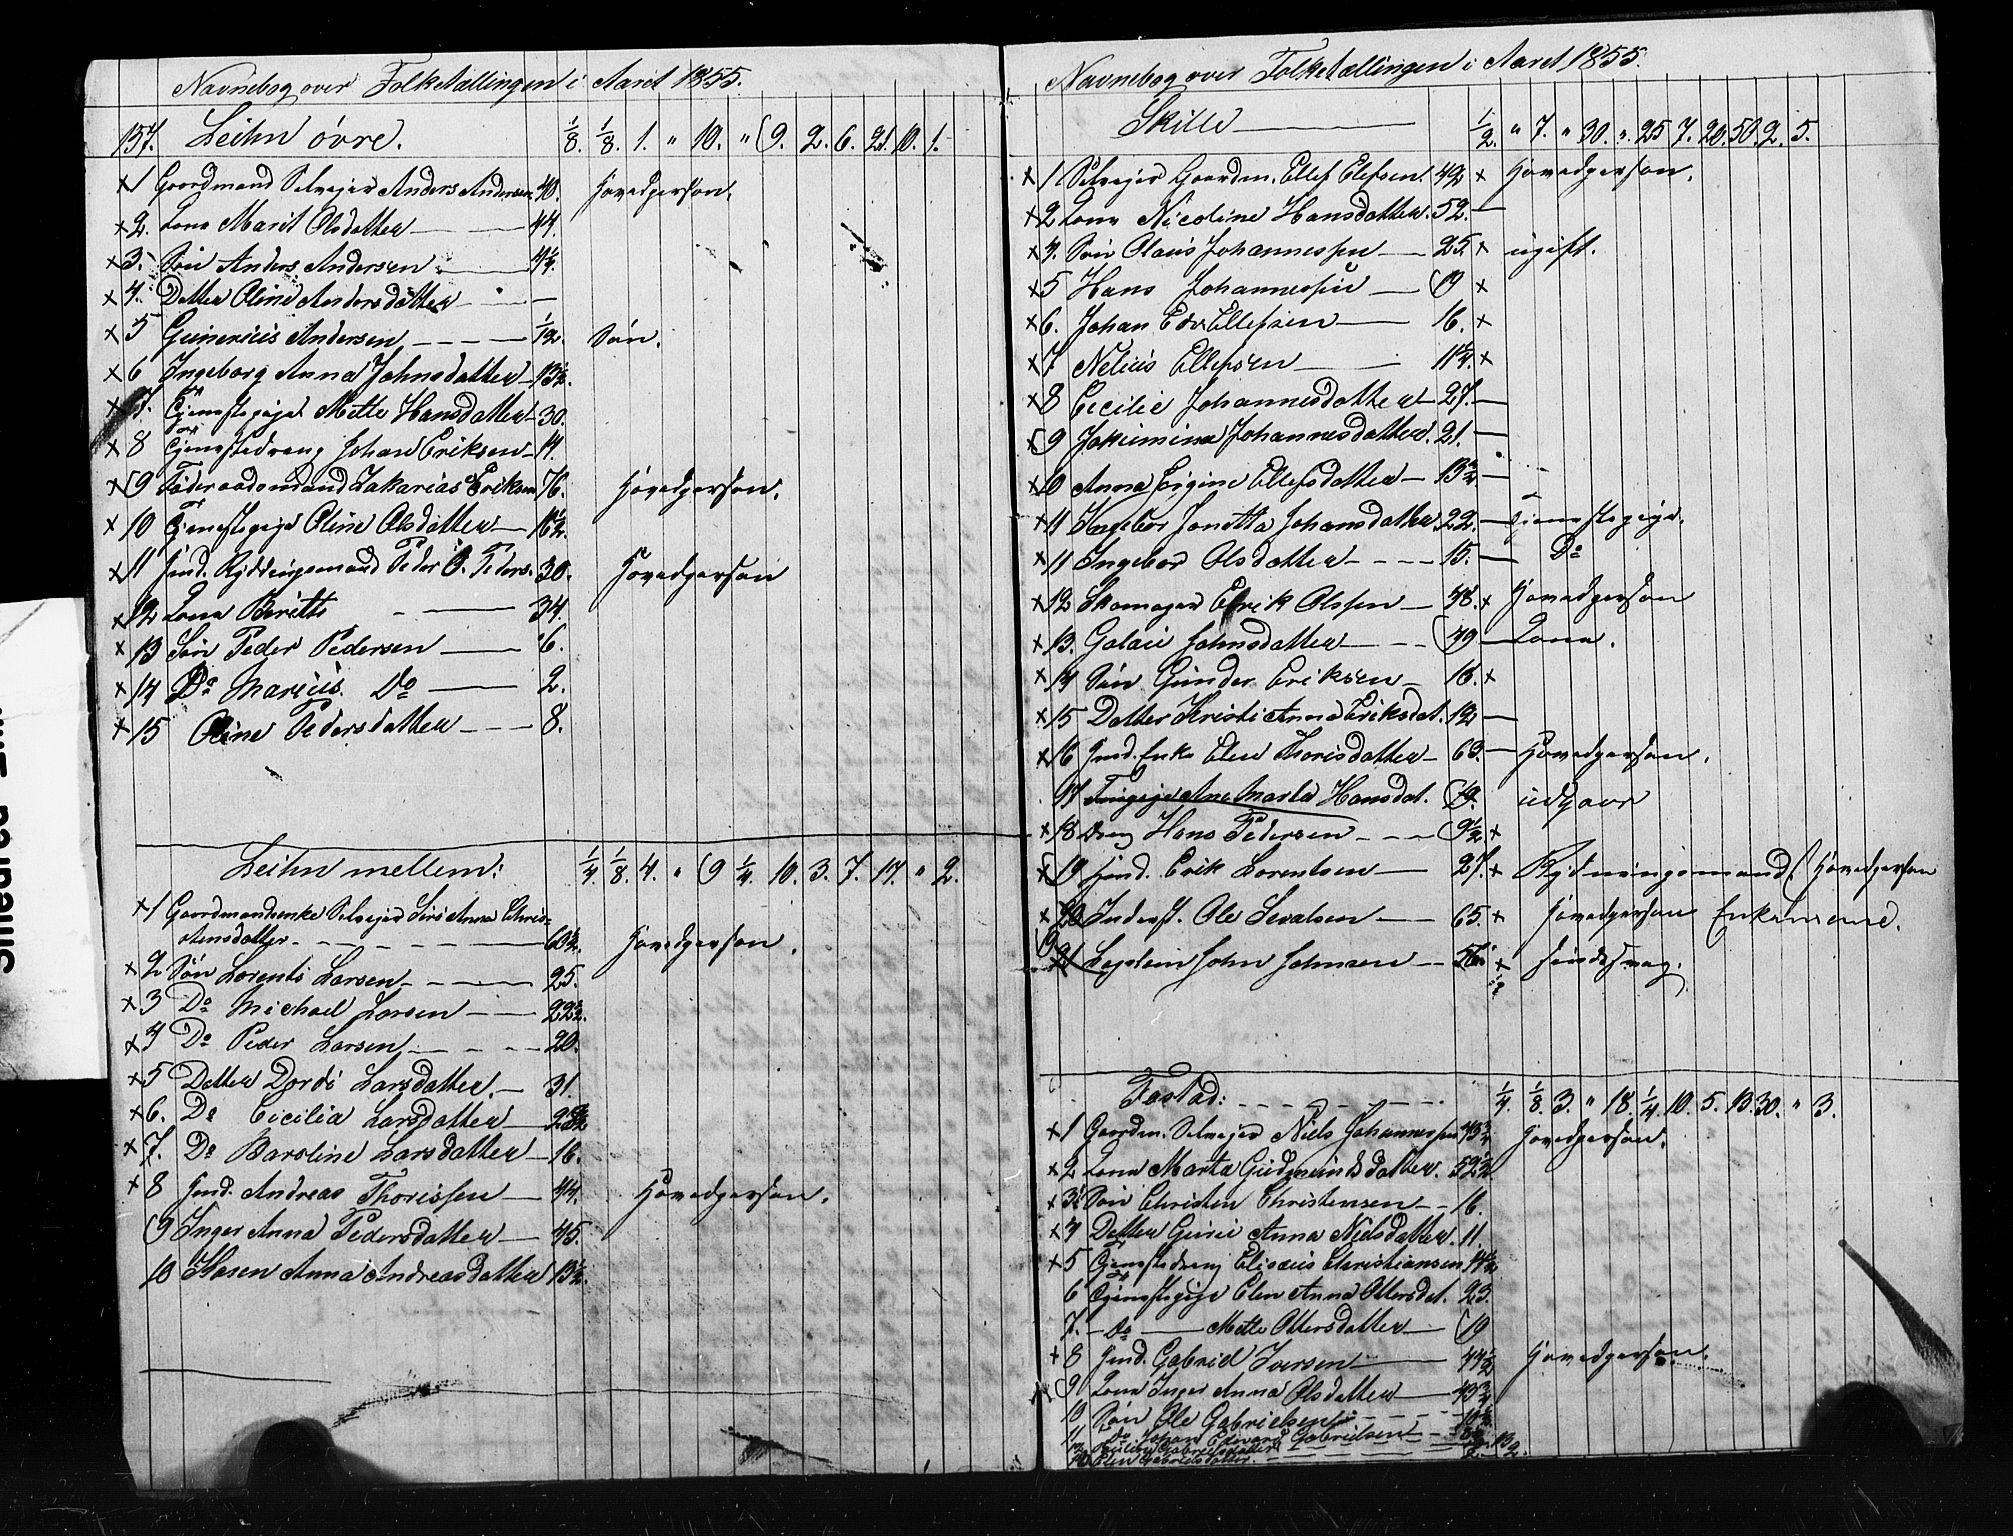 Navnebog over Folketællingen i Aaret 1855.
137. Leihn övre. 1/8. 1/8. 1. " 10. " 9. 2. 6. 21. 10. 1.
x 1 Goordmand Selvejer Anders Andersen 40. Hovedperson.
x 2. Kona Marit Olsdatter 44.
x 3. Sön Anders Andersen 4 1/4.
x 4. Datter Oline Andersdatter —
x 5 Gunerius Andersen 1/12. Sön.
x 6 Ingeborg Anna Johnsdatter 13 1/2.
x 7. Tjenestepige Mette Hansdatter 30.
x 8 Tjenestedreng Johan Eriksen 11.
x 9 Föderaadsmand Zakarias Eriksen 76. Hovedperson.
x 10 Tjenestepige Oline Olsdatter 16 1/2.
x 11 Ind. Rydningsmand Peder O. Peders. 30. Hovedperson
x 12 Kona Beritte 34.
x 13 Sön Peder Pedersen 6.
x 14 Do Marius Do 2.
x 15 Oline Pedersdatter 8.
Leihn mellem: 1/4. 1/8. 4. " 9 1/4. 10. 3. 7. 17. " 2.
x 1 Goordmandsenke Selvejer Siri Anna Chris-
stensdatter 60 1/2. Hovedperson.
x 2 Sön Lorents Larsen 25.
x 3 Do Michael Larsen 22 1/2.
x 4 Do Peder Larsen 20.
x 5 Datter Dordi Larsdatter. 31.
x 6. Do Cicilia Larsdatter 28 1/2
x 7. Do Karoline Larsdatter 16.
x 8 Ind. Andreas Thorissen 44. Hovedperson.
9 Inger Anna Pedersdatter 45.
10 Karen Anna Andreasdatter 13 1/2.
Navnebog over Folketællingen i Aaret 1855.
Skille 1/2. " 7. " 30. " 25 7. 20. 50. 2. 5.
x 1 Selvejer Goordm. Ellef Elefsen. 42 x Hovedperson.
x 2 Kona Nicoline Hansdatter. 52. —
x 4. Sön Olaus Johannessen 25. x ugift.
x 5 Hans Johannessen 19 x
x 6. Johan Edv. Ellefsen 16. x
x 7 Nelius Ellefsen 11 1/4. x
x 8 Cecilie Johannesdatter 27. —
x 9 Jakimina Johannesdatter. 21. —
x 10 Anna Ergine Ellefsdatter 13 3/4. —
x 11 Ingebor Jonetta Johansdatter 22. — Tjenestepige.
x 11 Ingebor Olsdatter 15. — Do
x 12 Skomager Erik Olssen 48. x Hovedperson
x 13. Golaie Johnsdatter 49 — Kona.
x 14 Sön Gunder Eriksen 16. x
x 15 Datter Kristi Anna Eriksdat. 12 —
x 16 Ind. Enke Elen Thorisdatter 63. — Hovedperson.
17 Ane Marta Hansdat. 19. udgaar
x 18 Dreng Hans Pedersen 9 1/2 x
x 19 Ind. Erik Lorentsen 27. x Rydningsmand Hovedperson
x 20 Inderst. Ole Sevalsen 65. x Hovedperson Enkemand.
x 21 Legdslem John Johnsen 56. x sindssvag.
Fostad: 1/4. 1/8. 3. " 18. 1/4. 10. 5. 13. 30. " 3.
x 1 Goordm. Selvejer Niels Johannessen 43 3/4 Hovedperson.
x 2 Kona Marta Gudmundsdatter. 52 1/2
x 3 Sön Christen Christensen 16.
x 4 Datter Guru Anna Nielsdatter. 11.
x 5 Tjenestedreng Elisæus Christiansen 14 1/2
6 Tjenestepige Elen Anna Ottersdat. 23.
7. Do Mette Ottersdatter 19
x 8 Ind. Gabriel Iversen 44 1/2 Hovedperson.
x 9 Kona Inger Anna Olsdatter 43 3/4
10 Sön Ole Gabrielsen
11 Do Johan Edevard Gabrielsen
12 Gabrielsdatter
13 Elen Gabrielsdatter